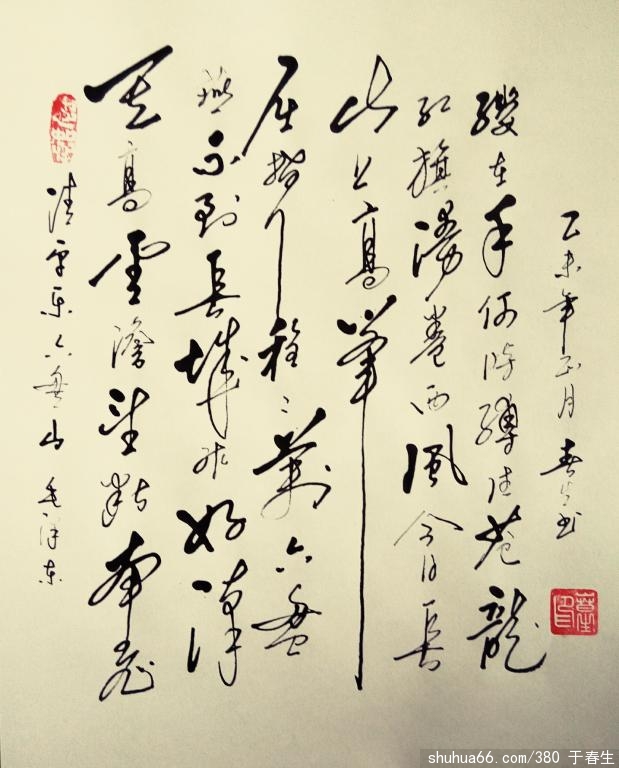 清平乐六盘山 毛泽东
天高雲澹望断南飛
燕不到長城非好漢
屈指行程二萬六盘
山上高峯
红旗漫卷西風今日長
缨在手何时缚住苍龍
乙未年正月春生书
shuhua66.com/380 于春生